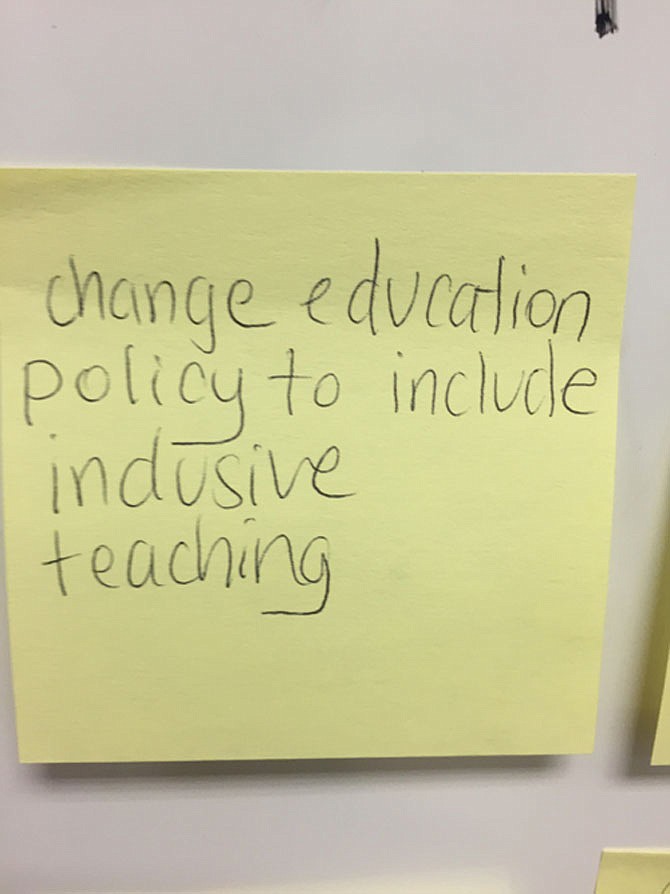 change education
policy to include
inclusive
teaching